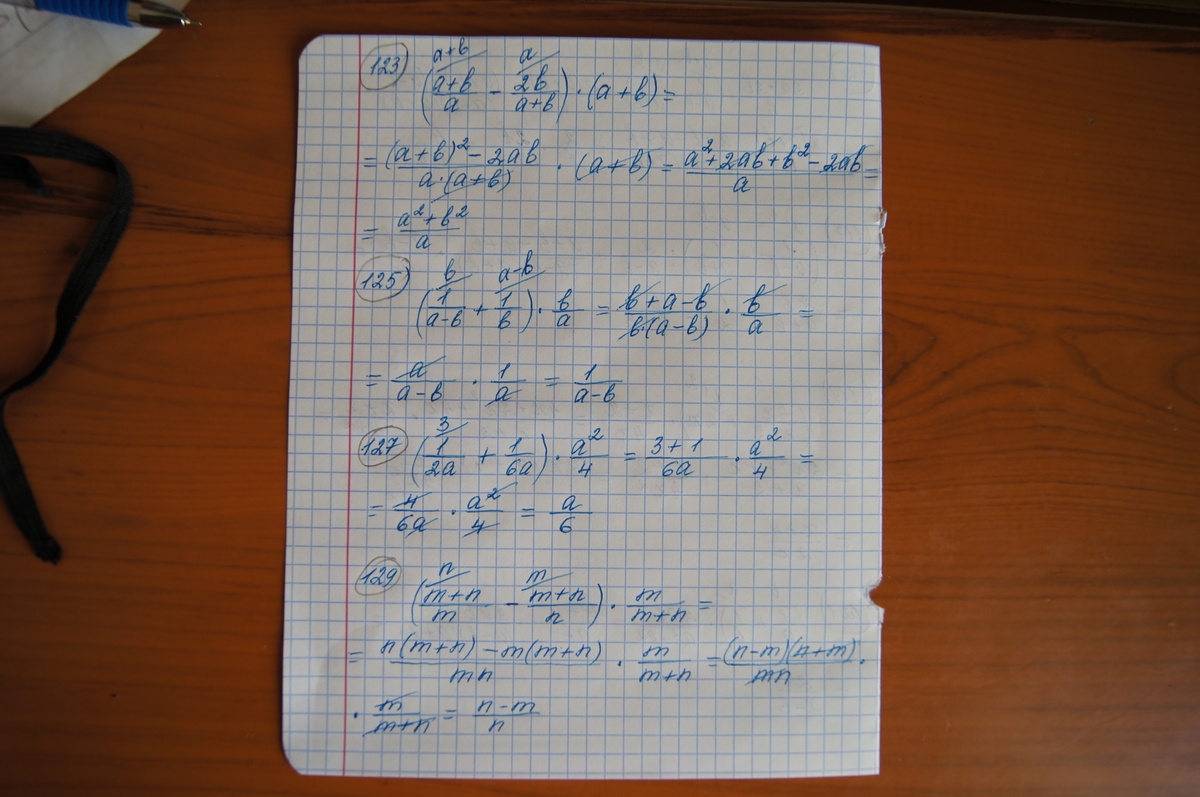 123) (a+b/ (a+b)/a - a/ 2b/(a+b)) · (a+b) =
= ((a+b)² - 2ab)/(a·(a+b)) · (a+b) = (a²+2ab+b²-2ab)/a =
= (a²+b²)/a
125) (b/ 1/(a-b) + a-b/ 1/b) · b/a = (b+a-b)/(b·(a-b)) · b/a =
= a/(a-b) · 1/a = 1/(a-b)
127) (3/ 1/2a + 1/6a) · a²/4 = (3+1)/6a · a²/4 =
= 4/6a · a²/4 = a/6
129) (n/ (m+n)/m - m/ (m+n)/n) · m/(m+n) =
= (n(m+n) - m(m+n))/mn · m/(m+n) = (n-m)(n+m)/mn ·
· m/(m+n) = (n-m)/n